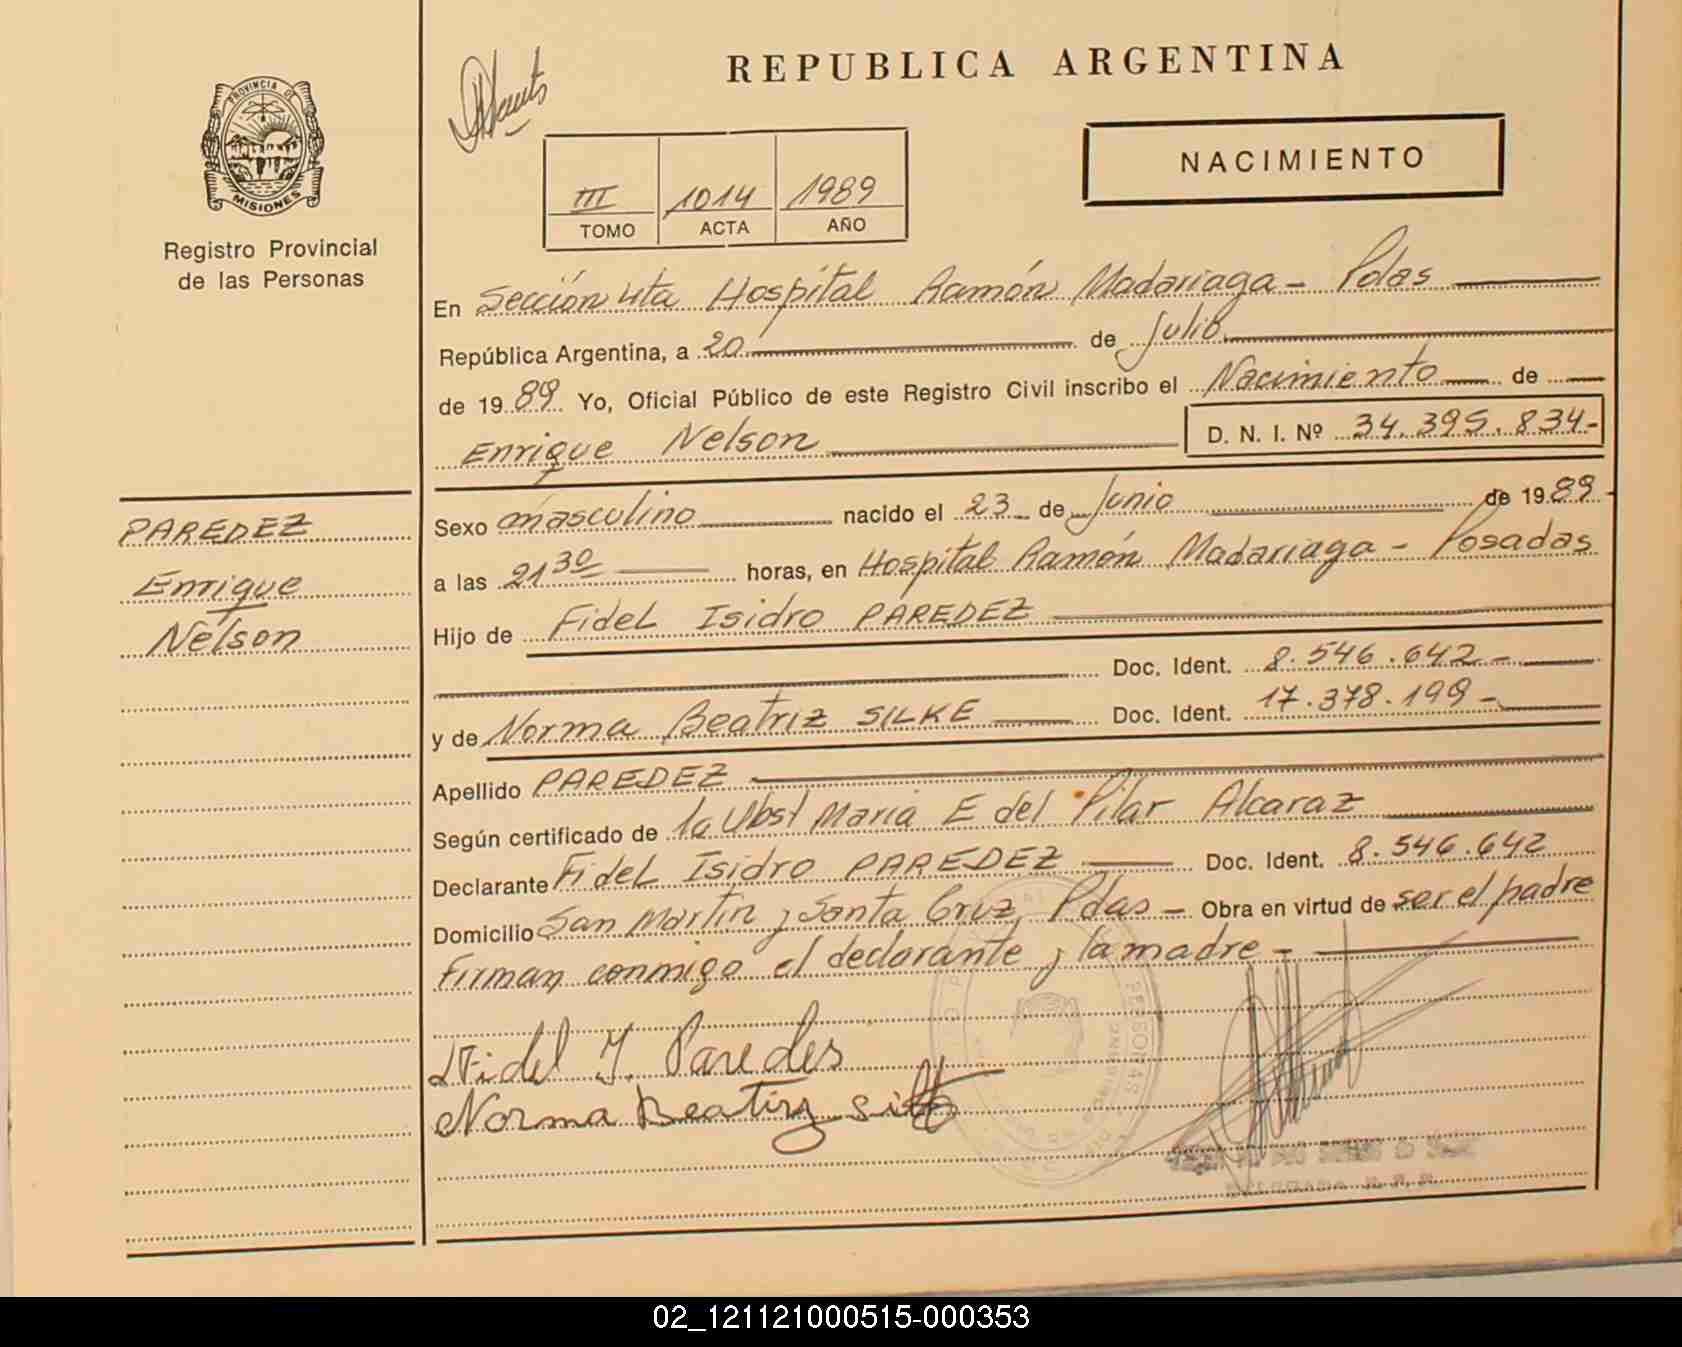 REPUBLICA ARGENTINA
PROVINCIA DE
MISIONES
Registro Provincial
de las Personas
NACIMIENTO
III 1014 1989
TOMO ACTA AÑO
En Sección 4ta Hospital Ramón Madariaga - Pdas
República Argentina, a 20 de Julio
de 1989 Yo, Oficial Público de este Registro Civil inscribo el Nacimiento de
Enrique Nelson D. N. I. Nº 34.395.834-
PAREDEZ
Enrique
Nelson
Sexo masculino nacido el 23 de Junio de 1989-
a las 21 30 horas, en Hospital Ramón Madariaga - Posadas
Hijo de Fidel Isidro PAREDEZ
Doc. Ident. 8.546.642-
y de Norma Beatriz SILKE Doc. Ident. 17.378.199-
Apellido PAREDEZ
Según certificado de la Obst Maria E del Pilar Alcaraz
Declarante Fidel Isidro PAREDEZ Doc. Ident. 8.546.642
Domicilio San Martin y Santa Cruz, Pdas - Obra en virtud de ser el padre
Firman conmigo el declarante y la madre -
Fidel I. Paredes
Norma Beatriz
PERSONAS
02_121121000515-000353